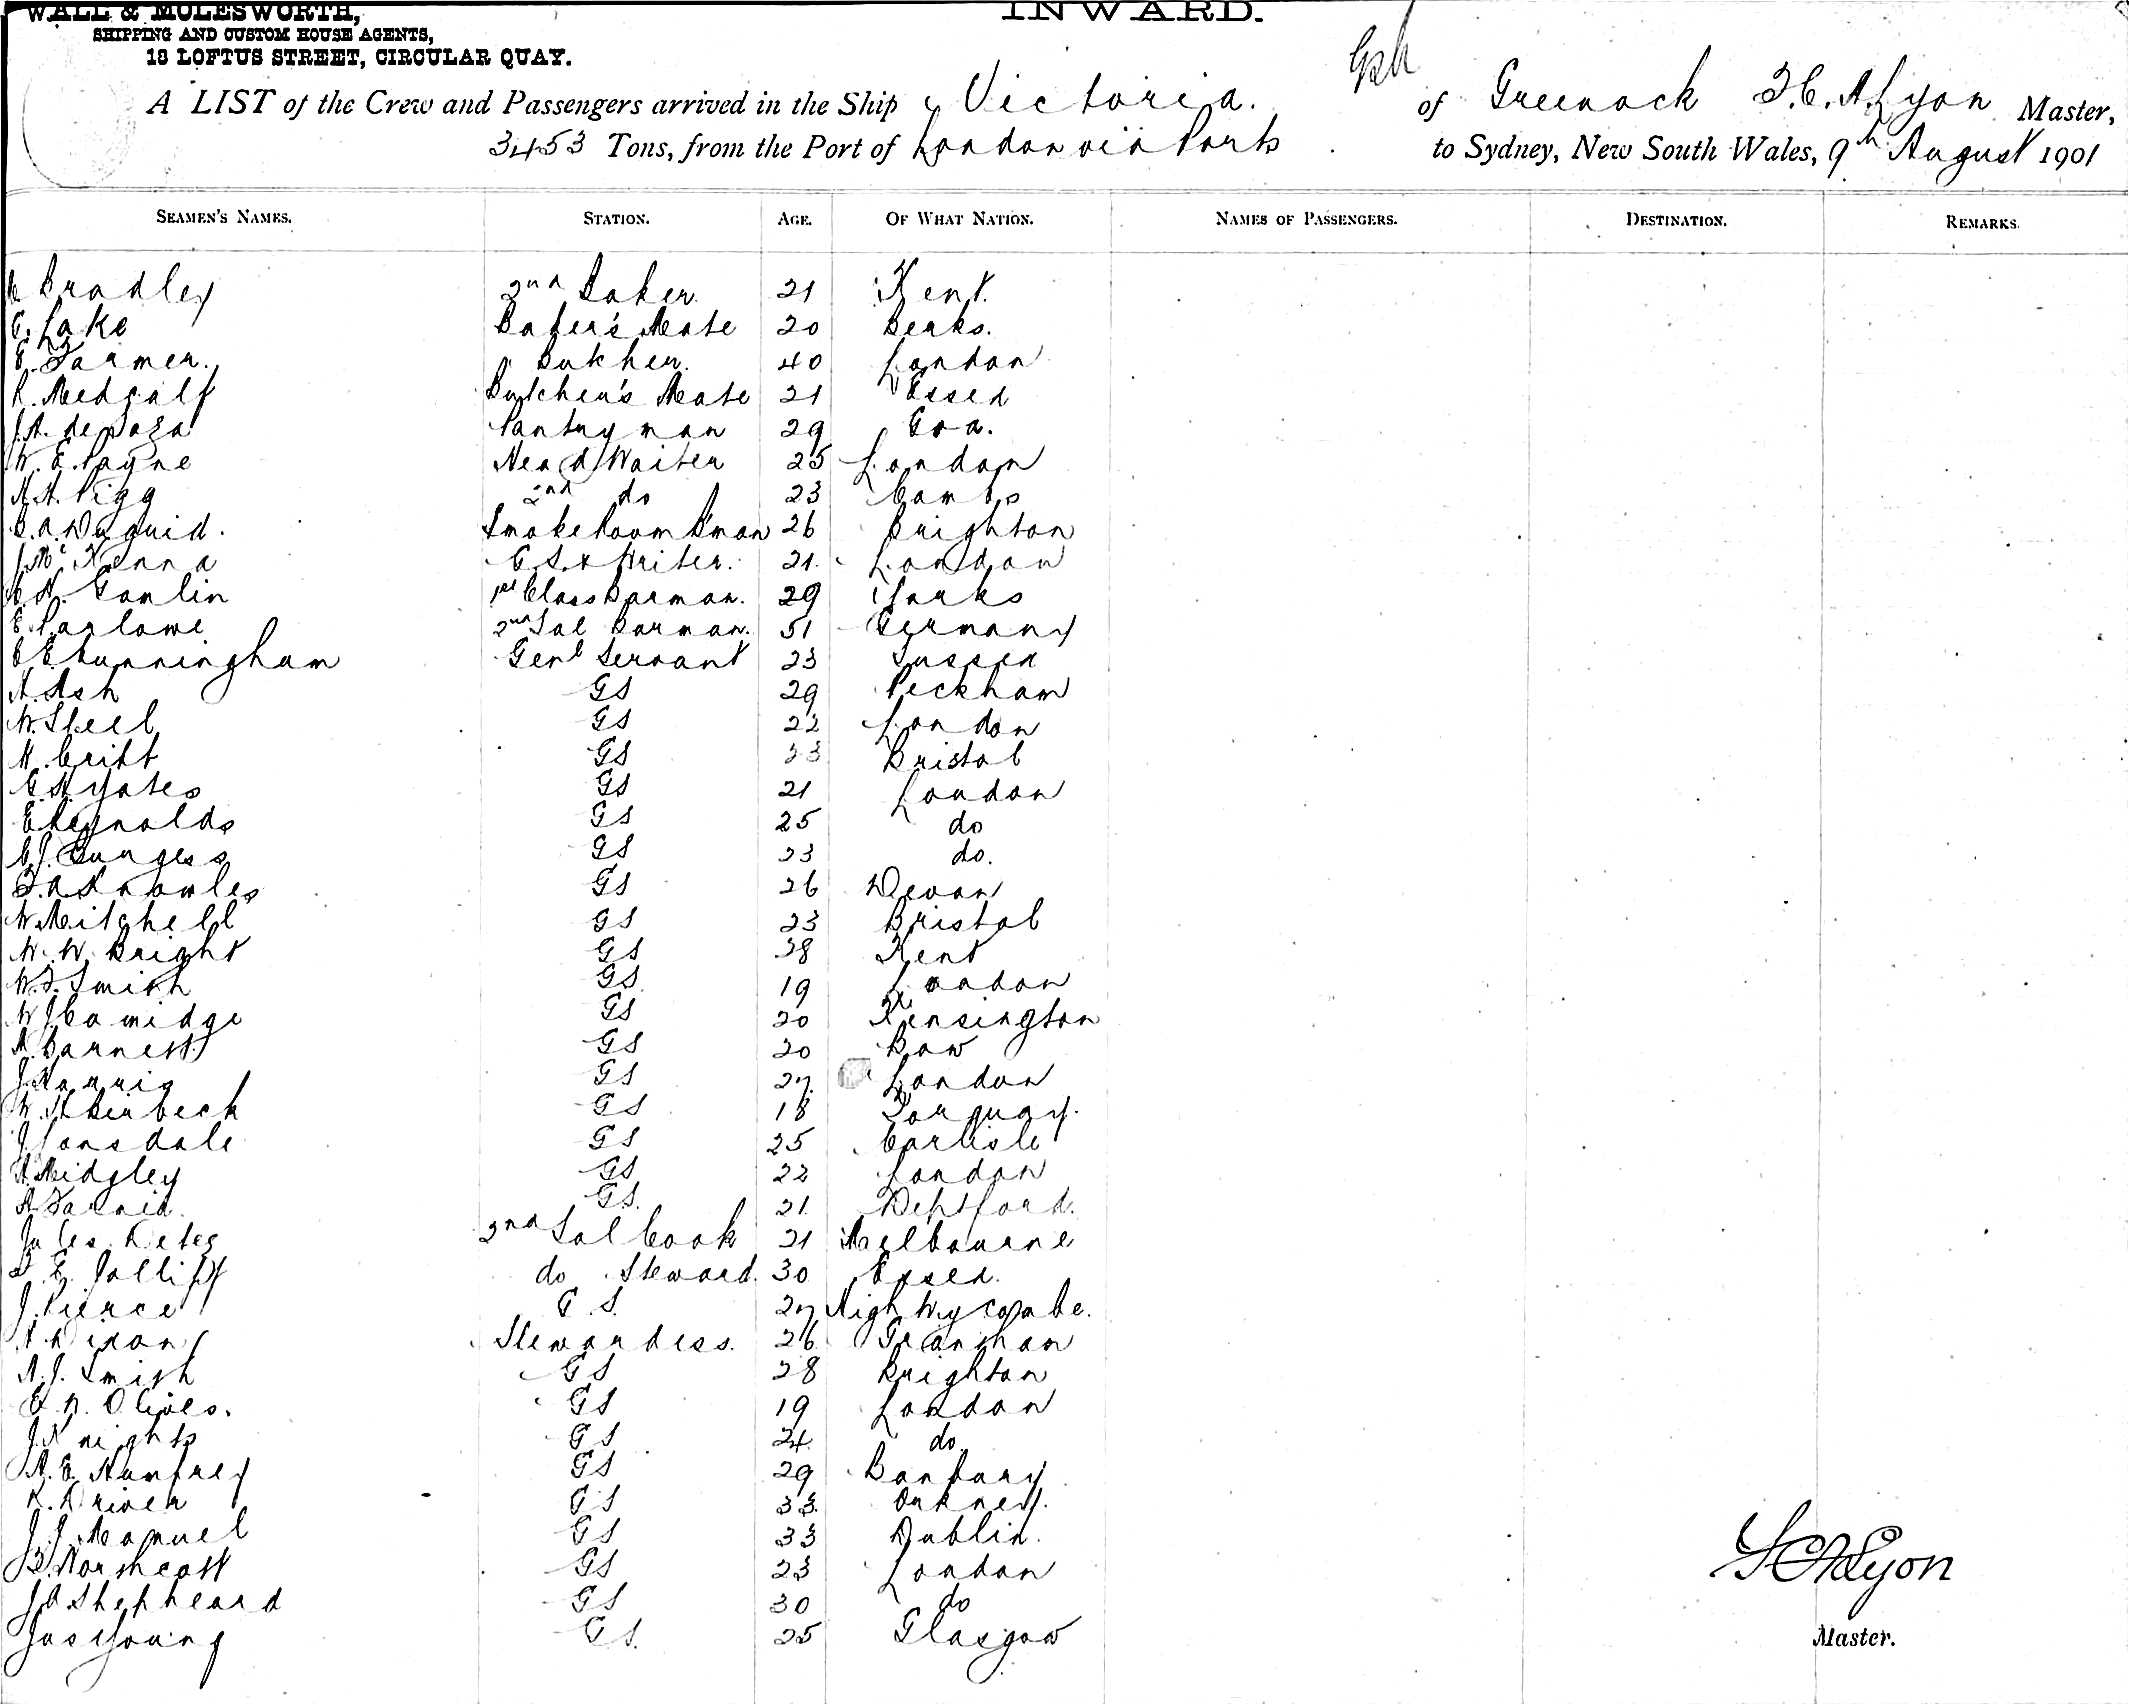 WALL & MOLESWORTH,
SHIPPING AND CUSTOM HOUSE AGENTS,
13 LOFTUS STREET, CIRCULAR QUAY.
INWARD.
A LIST of the Crew and Passengers arrived in the Ship Victoria. of Greenock Lyon Master,
3453 Tons, from the Port of London via Ports to Sydney, New South Wales, 9th August 1901
SEAMEN'S NAMES. STATION. AGE. OF WHAT NATION. NAMES OF PASSENGERS. DESTINATION. REMARKS.
Bradley 2nd Baker 21 Kent.
C. Lake Baker's Mate 20 Berks.
E. Farmer. Butcher. 40 London
R. Medcalf Butcher's Mate 21 Essex
J.A. de Soza Pantryman 29 Goa.
W. E. Payne Head Waiter 25 London
A.A. Pigg 2nd do 23 Cambs
Duguid. Smoke Room Sman 26 Brighton
J. McKenna G.S. & Writer. 21. London
C.H. Gamlin 1st Class Barman. 29 Yorks
E. Parlowe 2nd Sal Barman. 51 Germany
C E Cunningham Genl Servant 23 Sussex
A. Ash GS 29 Peckham
W. Steel GS 22 London
H. Cribb GS 33 Bristol
G.H. Yates GS 21 London
E Reynolds GS 25 do
C.J. Burgess GS 23 do.
F.A. Knowles GS 26 Devon
W. Mitchell GS 23 Bristol
W. W. Bright GS 38 Kent
W.F. Smith GS 19 London
W J Camidge GS 20 Kensington
A. Barnett GS 20 Bow
J. Harris GS 27. London
W. H. Birbeck GS 18 Torquay.
J Lonsdale GS 25 Carlisle
A. Midgley GS 22 London
A. GS. 21. Deptford.
Jules 2nd Sal Cook 21 Melbourne
E. Jolliff do Steward. 30 Essex.
J. Pierce G.S. 27 High Wycombe.
Dixon Stewardess. 26
A.J. Smith GS 28 Brighton
Olives. GS 19 London
J. Knights GS 24. do.
A. E. Humfrey GS 29 Banbury
R. Driver GS 33. Orkney.
J. J. Manuel GS 33 Dublin.
Northcott GS 23 London
J A Shepheard GS 30 do
Jas Young G.S. 25 Glasgow
Lyon
Master.